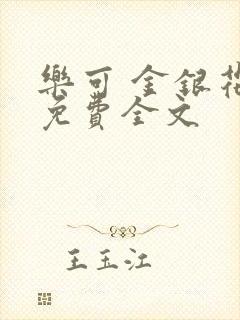 樂可 金銀花
免費全文
王玉江